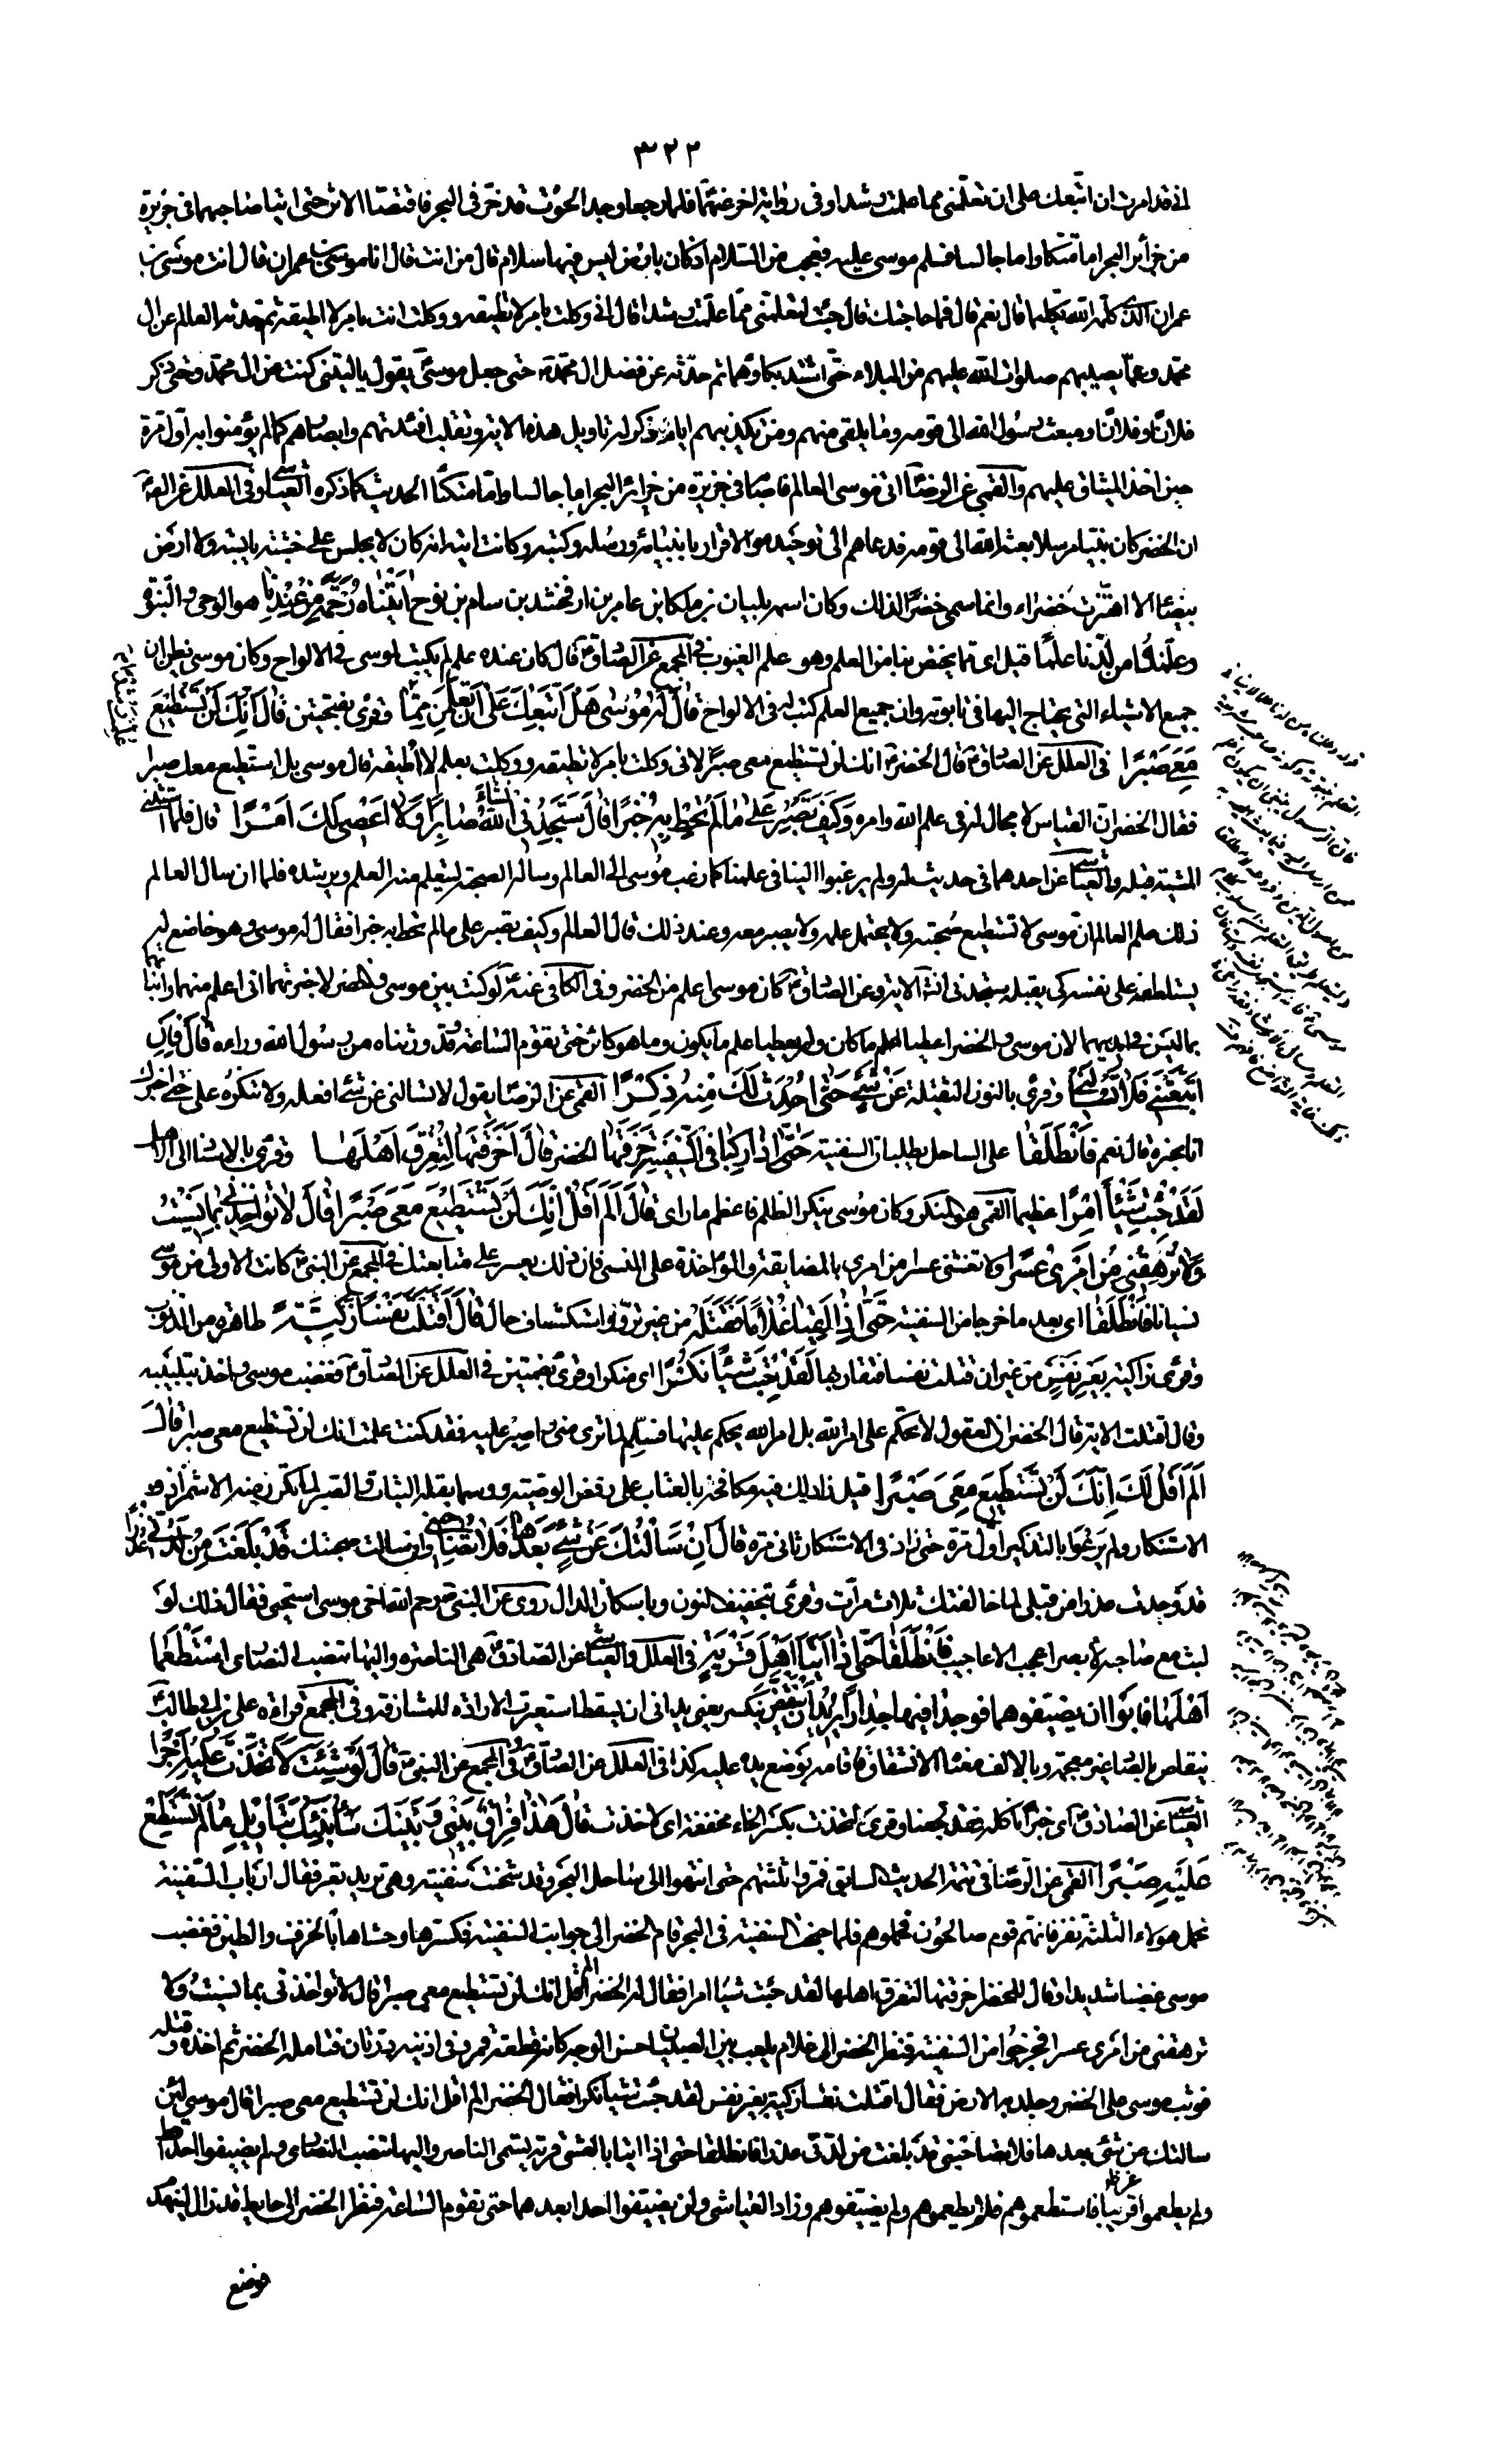 ٣٢٢
انى قد امرت ان اتبعك على ان تعلمنى مما علمت رشدا وفى رواية اخرى عنهما فلما رجعا وجد الحوت قد خر فى البحر فاقتصا الاثر حتى اتيا صاحبهما فى جزيرة
من جزائر البحر اما متكئا واما جالسا فسلم موسى عليه فعجب من السلام اذ كان بارض ليس فيها سلام قال من انت قال انا موسى بن عمران قال انت موسى بن
عمران الذى كلمه الله تكليما قال نعم قال فما حاجتك قال جئت لتعلمنى مما علمت رشدا قال انى وكلت بامر لا تطيقه ووكلت انت بامر لا اطيقه ثم حدثه العالم عن ال
محمد وعما يصيبهم صلوات الله عليهم من البلاء حتى اشتد بكاؤهما ثم حدثه عن فضل ال محمد حتى جعل موسى يقول يا ليتنى كنت من ال محمد وحتى ذكر
فلانا وفلانا ومبعث رسول الله الى قومه وما يلقى منهم ومن تكذيبهم اياه وذكر له تاويل هذه الاية ونقلب افئدتهم وابصارهم كما لم يؤمنوا به اول مرة
حين اخذ الميثاق عليهم والقمى عن الرضا اتى موسى العالم فاصابه فى جزيرة من جزائر البحر اما جالسا واما متكئا الحديث كما ذكره العياشى وفى العلل عن
ان الخضر كان نبيا مرسلا بعثه الله الى قومه فدعاهم الى توحيده والاقرار بانبيائه ورسله وكتبه وكانت ايته انه كان لا يجلس على خشبة يابسة ولا ارض
بيضاء الا اهتزت خضراء وانما سمى خضرا لذلك وكان اسمه بليا بن ملكا بن عامر بن ارفخشد بن سام بن نوح اتيناه رحمة من عندنا هو الوحى والنبوة
وعلمناه من لدنا علما قيل اى مما يختص بنا من العلم وهو علم الغيوب فى المجمع عن الصادق قال كان عنده علم لم يكتب لموسى فى الالواح وكان موسى يظن ان
جميع الاشياء التى يحتاج اليها فى تابوته وان جميع العلم كتب له فى الالواح قال له موسى هل اتبعك على ان تعلمن مما وقرئ بفتحتين قال انك لن تستطيع
معى صبرا فى العلل عن الصادق قال الخضر انك لن تستطيع معى صبرا لانى وكلت بامر لا تطيقه ووكلت بعلم لا اطيقه قال موسى بل استطيع معك صبرا
فقال الخضر ان القياس لا مجال له فى علم الله وامره وكيف تصبر على ما لم تحط به خبرا قال ستجدنى ان شاء الله صابرا ولا اعصى لك امرا قال فلما استثنى
المشية قبله والعياشى عن احدهما فى حديث له ولم يرغبوا الينا فى علمنا كما رغب موسى الى العالم وساله الصحبة ليتعلم منه العلم ويرشده فلما ان سال العالم
ذلك علم العالم ان موسى لا تستطيع صحبته ولا يحتمل علمه ولا يصبر معه وعند ذلك قال العالم وكيف تصبر على ما لم تحط به خبرا فقال له موسى وهو خاضع له
يستلطفه على نفسه كى يقبله ستجدنى ان شاء الاية وعن الصادق كان موسى اعلم من الخضر وفى الكافى عنه لو كنت بين موسى والخضر لاخبرتهما انى اعلم منهما وانباتهما
بما ليس فى ايديهما لان موسى والخضر اعطيا علم ما كان ولم يعطيا علم ما يكون وما هو كائن حتى تقوم الساعة وقد ورثناه من رسول الله وراثة قال فان
اتبعتنى فلا تسئلنى وقرئ بالنون الثقيلة عن شئ حتى احدث لك منه ذكرا القمى عن الرضا يقول لا تسالنى عن شئ افعله ولا تنكره على حتى اخبرك
انا بخبره قال نعم فانطلقا على الساحل يطلبان السفينة حتى اذا ركبا فى السفينة خرقها الخضر قال اخرقتها لتغرق اهلها وقرئ بالاسناد الى الاهل
لقد جئت شيئا امرا عظيما القمى هو المنكر وكان موسى ينكر الظلم فاعظم ما راى قال الم اقل انك لن تستطيع معى صبرا قال لا تؤاخذنى بما نسيت
ولا ترهقنى من امرى عسرا ولا تغشنى عسرا من امرى بالمضايقة والمؤاخذة على المنسى فان ذلك يعسر على متابعتك فى المجمع عن النبى كانت الاولى من موسى
نسيانا فانطلقا اى بعد ما خرجا من السفينة حتى اذا لقيا غلاما فقتله من غير ترو واستكشاف حال قال اقتلت نفسا زكية طاهرة من الذنوب
وقرئ زاكية بغير نفس من غير ان قتلت نفسا فتقاد بها لقد جئت شيئا نكرا اى منكرا وقرئ بضمتين فى العلل عن الصادق فغضب موسى واخذ بتلبيبه
وقال اقتلت الاية قال الخضر ان العقول لا تحكم على امر الله بل امر الله يحكم عليها فسلم لما ترى منى واصبر عليه فقد كنت علمت انك لن تستطيع معى صبرا قال
الم اقل لك انك لن تستطيع معى صبرا قيل زاد لك فيه مكافحة بالعتاب على رفض الوصية ووسما بقلة الثبات والصبر لما تكرر منه الاشمئزاز و
الاستنكار ولم يرعو بالتذكير اول مرة حتى زاد فى الاستنكار ثانى مرة قال ان سالتك عن شئ بعدها فلا تصاحبنى وان سالت صحبتك قد بلغت من لدنى عذرا
قد وجدت عذرا من قبلى لما خالفتك ثلاث مرات وقرئ بتخفيف النون وباسكان الدال روى عن النبى رحم الله اخى موسى استحيى فقال ذلك لو
لبث مع صاحبه لابصر اعجب الاعاجيب فانطلقا حتى اذا اتيا اهل قرية فى العلل والعياشى عن الصادق هى الناصرة واليها تنسب النصارى استطعما
اهلها فابوا ان يضيفوهما فوجدا فيها جدارا يريد ان ينقض ينكسر يعنى يدانى ان يسقط استعيرت الارادة للمشارفة وفى المجمع قراءة على بن ابى طالب
ينقاص بالصاد غير معجمة وبالالف معناه الانشقاق فاقامه بوضع يده عليه كذا فى العلل عن الصادق وفى المجمع عن النبى قال لو شئت لاتخذت عليه اجرا
العياشى عن الصادق اى خبزا ناكله فقد جعنا وقرئ لتخذت بكسر الخاء مخففة اى لاخذت قال هذا فراق بينى وبينك سانبئك بتاويل ما لم تستطع
عليه صبرا القمى عن الرضا فى تتمة الحديث السابق فمروا ثلثتهم حتى انتهوا الى ساحل البحر وقد شحنت سفينة وهى تريد تعبر فقال ارباب السفينة
نحمل هؤلاء الثلثة نفر فانهم قوم صالحون فحملوهم فلما جنحت السفينة فى البحر قام الخضر الى جوانب السفينة فكسرها وحشاها بالخرق والطين فغضب
موسى غضبا شديدا وقال للخضر اخرقتها لتغرق اهلها لقد جئت شيئا امرا فقال له الخضر الم اقل انك لن تستطيع معى صبرا قال لا تؤاخذنى بما نسيت ولا
ترهقنى من امرى عسرا فخرجوا من السفينة فنظر الخضر الى غلام يلعب بين الصبيان حسن الوجه كانه قطعة قمر وفى اذنيه درتان فتامله الخضر ثم اخذه وقتله
فوثب موسى على الخضر وجلد به الارض فقال اقتلت نفسا زكية بغير نفس لقد جئت شيئا نكرا فقال الخضر الم اقل انك لن تستطيع معى صبرا قال موسى لئن
سالتك عن شئ بعدها فلا تصاحبنى قد بلغت من لدنى عذرا فانطلقا حتى اذا اتيا بالعشى قرية يسمى الناصرة واليها تنسب النصارى ولم يضيفوا احدا قط
ولم يطعموا قريبا فاستطعموهم فلم يطعموهم ولم يضيفوهم وزاد العياشى ولن يضيفوا احدا بعدهما حتى تقوم الساعة فنظر الخضر الى حايط قد زال لينهدم
فوضع